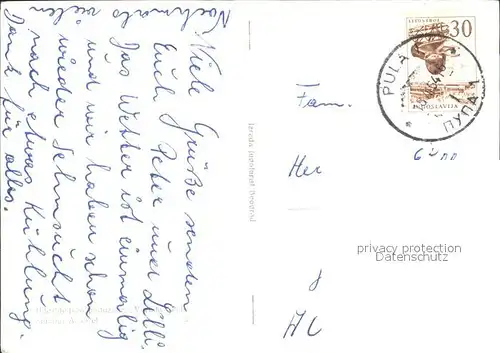 Viele Grüße senden
Euch Peter und Lilli.
Das Wetter ist einmalig
und wir haben schon
wieder Sehnsucht
nach etwas Kühlung.
Nochmals vielen
Dank für alles.
JUGOSLAVIJA
30
JUGOSLAVIJA
PULA
ПУЛА
Fam.
Her
privacy protection
Datenschutz